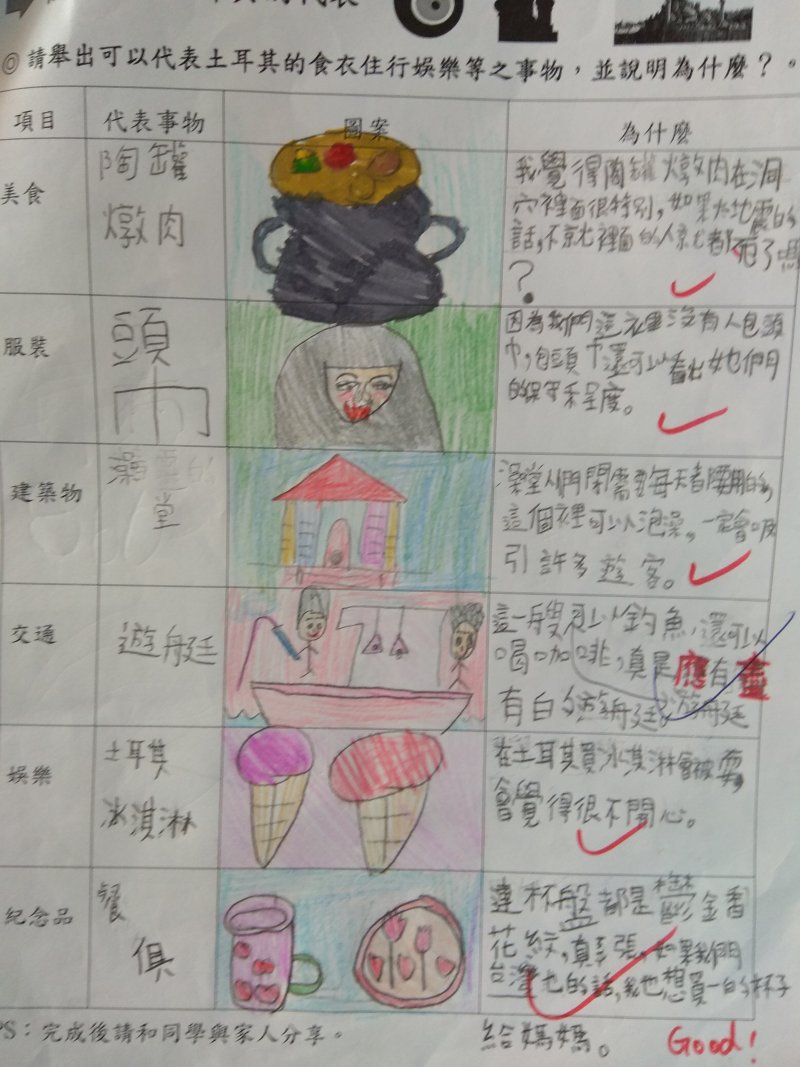 ◎請舉出可以代表土耳其的食衣住行娛樂等之事物，並說明為什麼？。
項目 代表事物 圖案 為什麼
美食
陶罐
燉肉
我覺得陶罐燉肉在洞
穴裡面很特別，如果大地震的
話，不就裡面的人就都死了嗎
？
服裝
頭
巾
因為我們這裡沒有人包頭
巾，包頭巾還可以看出她們
的保守程度。
建築物
澡堂
這個裡可以泡澡，一定會吸
引許多遊客。
交通
遊艇
這一艘可以釣魚，還可以
喝咖啡，真是應有盡
有的遊艇
娛樂
土耳其
冰淇淋
在土耳其買冰淇淋會被耍
會覺得很不開心。
紀念品
餐
俱
連杯盤都是鬱金香
花紋，真誇張，如果我們
台灣也的話，我也想買一的杯子
給媽媽。
PS：完成後請和同學與家人分享。
Good!